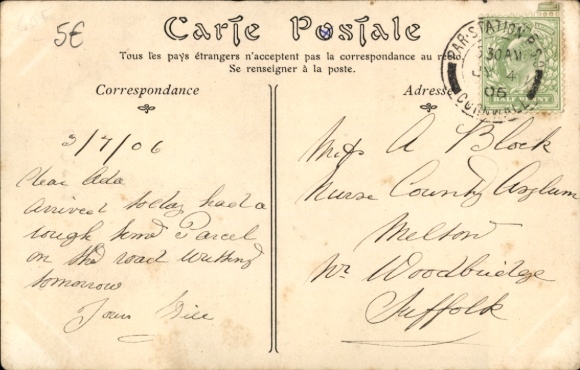 5€
Carte Postale
Tous les pays étrangers n'acceptent pas la correspondance au
Se renseigner à la poste.
Correspondance
Adresse
PAR-STATION
30AM
4
06
CORNWALL
HALFPENNY
3/7/06
Dear Ada
arrived today had a
rough time Parcel
on the road writing
tomorrow
Yours Bill
A Block
Nurse County Asylum
Melton
Nr Woodbridge
Suffolk